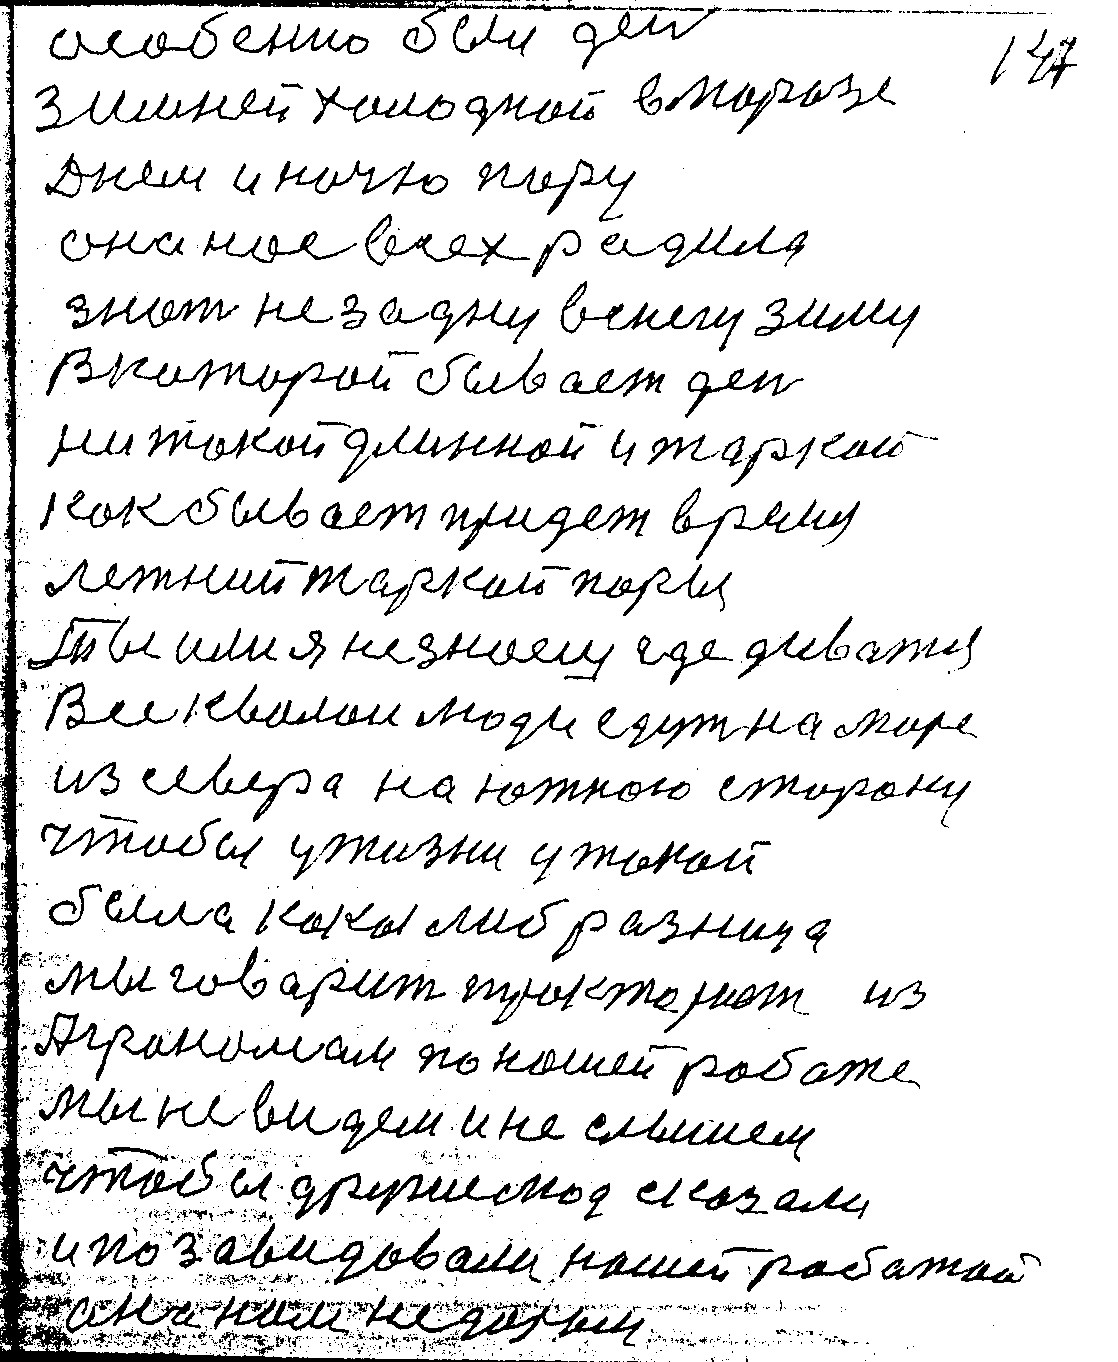 особенно были ден
147
зимней холодной в морозе
Днем и ночю пору
она нас всех радила
знот не задну в снегу зиму
В каторой бывает ден
ни такой длинной и жаркой
как бывает придет время
летний жаркой поры
Ты или я не знаем где диватя
Все кволои люди едут на море
из севера на южною сторону
чтобы у жизни у такой
была кака либ разница
мы говарит трактарист из
Аграномам по нашей работе
мы не видем и не слышем
чтобы другие сказали
и по завидовали нашей работой
она нам